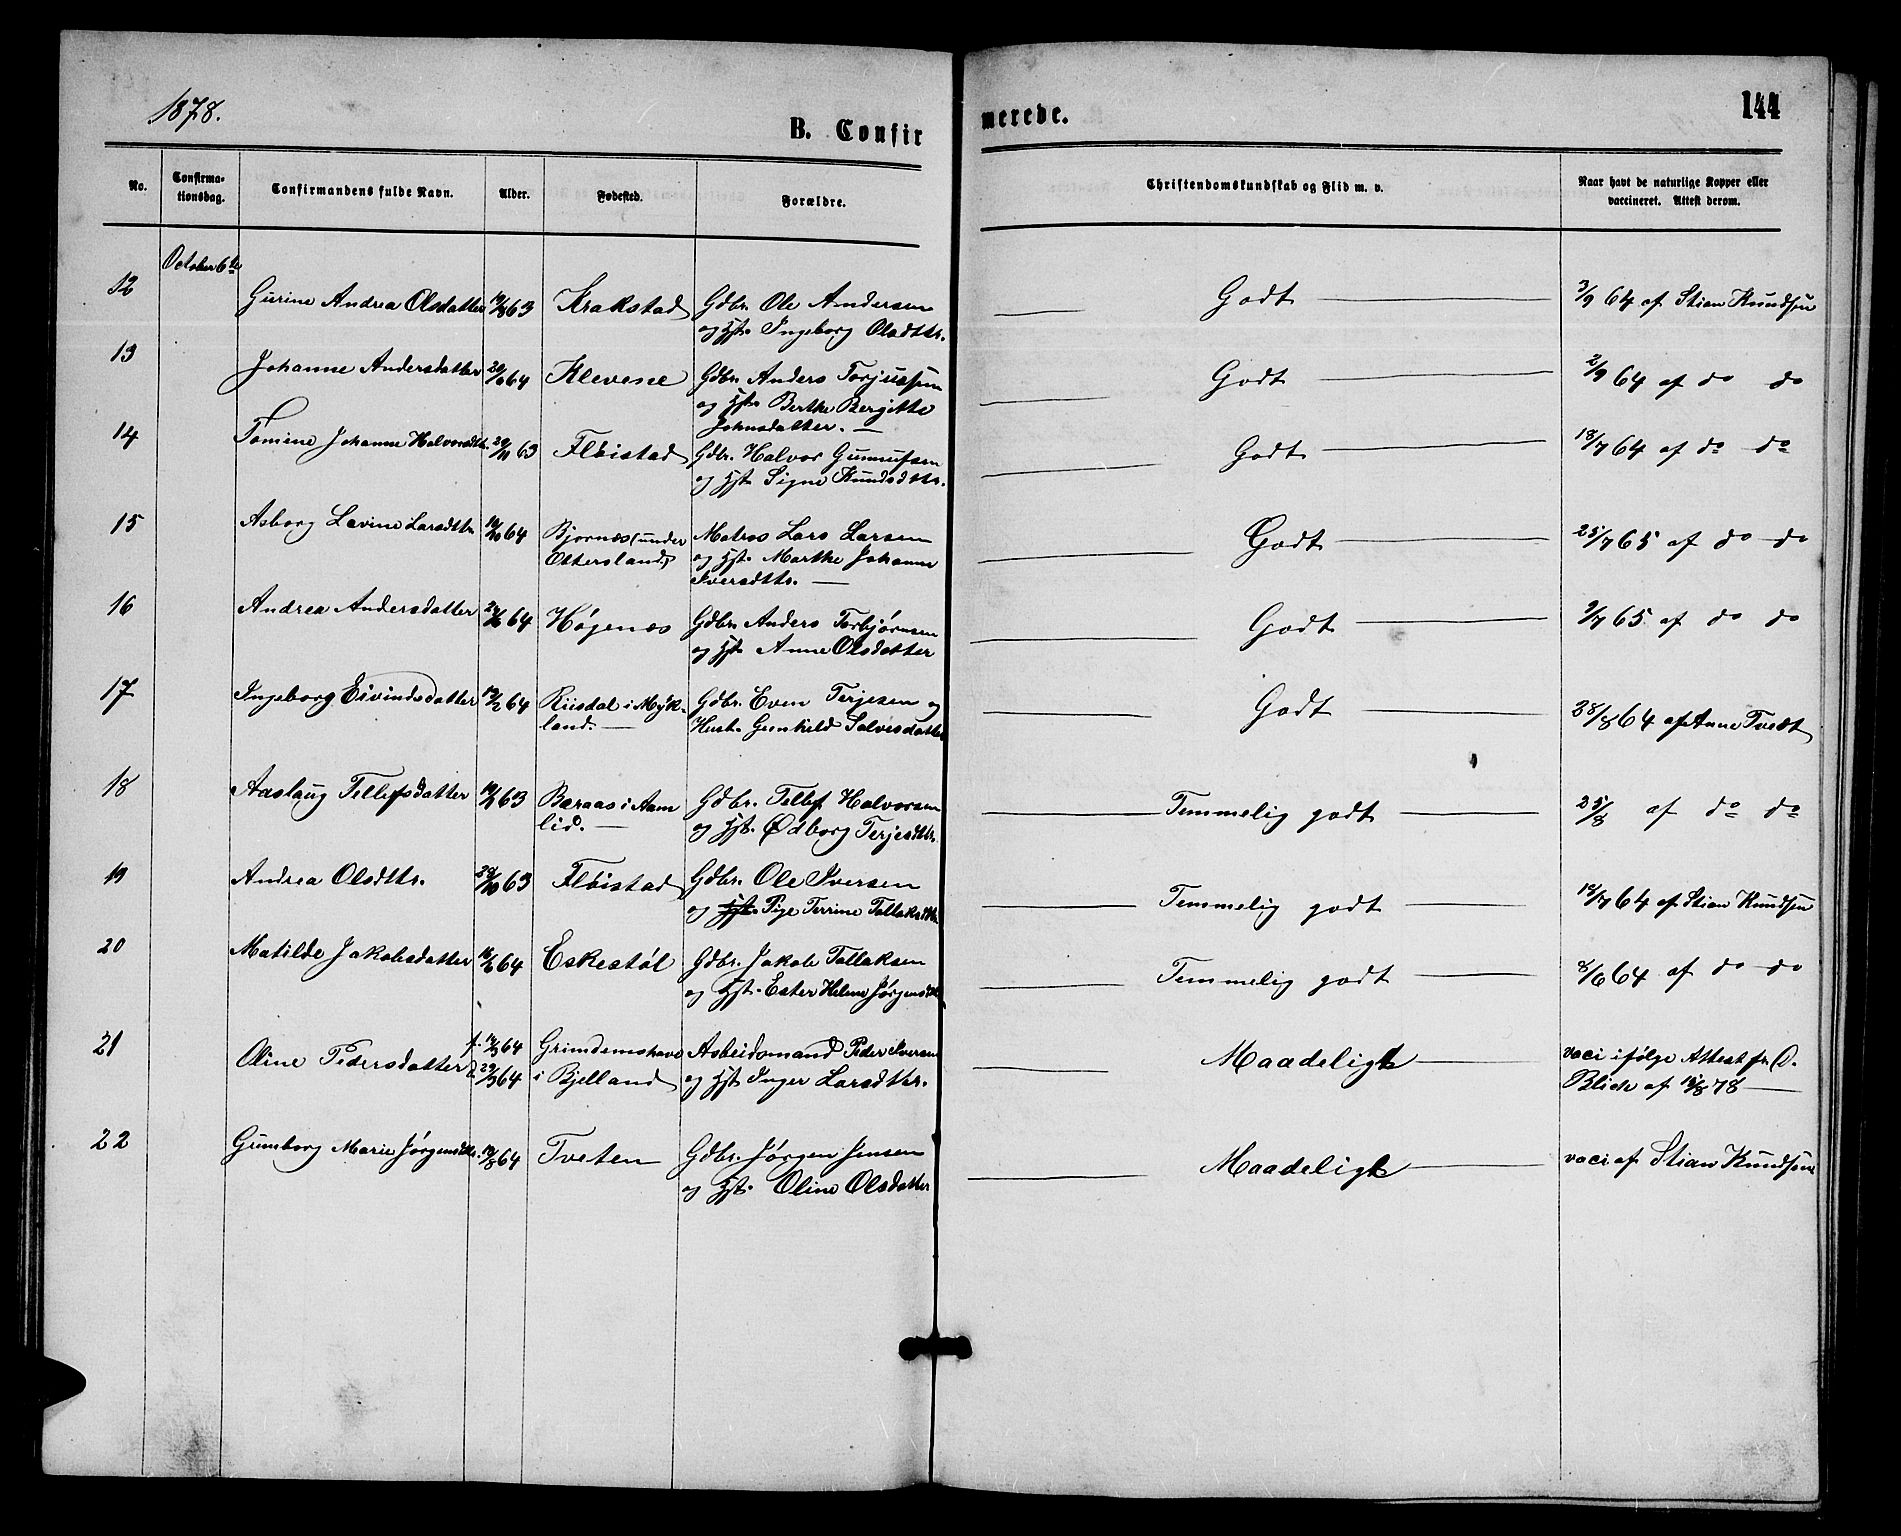 1878.
B. Confirmerede.
144
No.
Confirma-
tionsdag.
Confirmandens fulde Navn.
Alder.
Fødested.
Forældre.
Christendomskundskab og Flid m. v.
Naar havt de naturlige Kopper eller
vaccineret. Attest derom.
October 6te
12 Gurine Andrea Olsdatter 63 Krakstad Gdbr. Ole Andersen Godt 3/9 64 af Stian Knudsen
og Hst. Ingeborg Olsdttr.
13 Johanne Andersdatter 64 Klevene Gdbr. Anders Torjussen Godt 2/9 64 af do do
og Hst. Berthe Bergitte
Johnsdatter. —
14 Tomine Johanne Halvorsdtr. 29/11 63 Fløistad Gdbr. Halvor Gunnufsen Godt 18/7 64 af do do
og Hst. Signe Knudsdttr.
15 Asborg Lavine Larsdttr. 19/10 64 Bjornæs (under Matros Lars Larsen Godt 25/7 65 af do do
Ottersland) og Hst. Marthe Johanne
Iversdttr. —
16 Andrea Andersdatter 64 Høgenæs Gdbr. Anders Torbjørnsen Godt 9/7 65 af do do
og Hst. Anne Olsdatter
17 Ingeborg Eivindsdatter 64 Riisdal i Myk- Gdbr. Even Terjesen og Godt 28/8 64 af Anne Tvedt
land. — Hust. Gunhild Salvesdatter
18 Aaslaug Tellefsdatter 63 Baraas i Aam Gdbr. Tellef Halvorsen Temmelig godt 25/8 af do do
lid. — og Hst. Ødborg Terjesdttr.
19 Andrea Olsdttr. 63 Fløistad Gdbr. Ole Iversen Temmelig godt 18/7 64 af Stian Knudsen
og Hst. Pige Terrine Tallaksdttr.
20 Matilde Jakobsdatter 64 Eskestøl Gdbr. Jakob Tallaksen Temmelig godt 8/6 64 af do do
og Hst. Ester Helene Jørgensdtr.
21 Oline Pedersdatter f. 64 Grimdemshave Arbeidsmand Peder Iversen Maadeligt vaci ifølge Attest fr. O.
64 i Bjelland og Hst. Inger Larsdttr. Blich af 78
22 Gunborg Marie Jørgensdtr. 19/8 64 Tveten Gdbr. Jørgen Jensen Maadeligt vaci af Stian Knudsen
og Hst. Oline Olsdatter